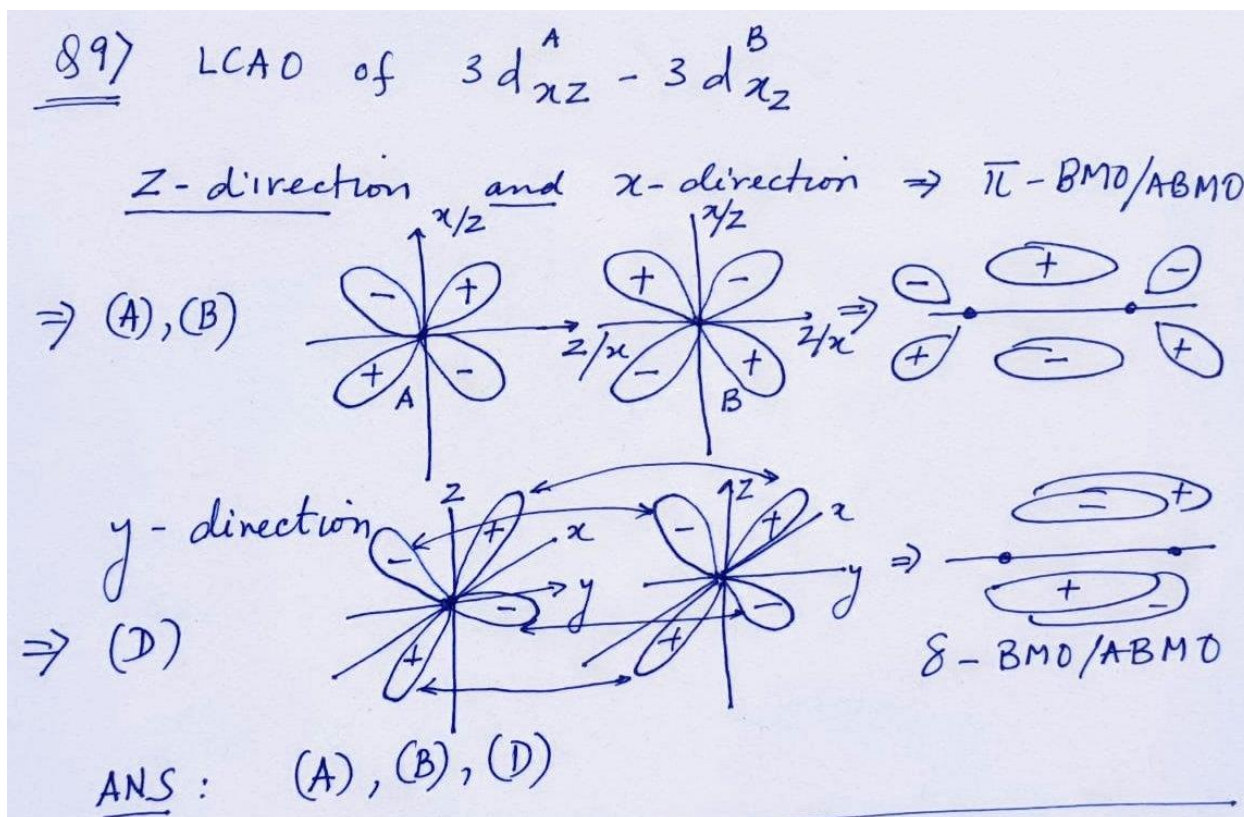 Q9) LCAO of 3d^A_{xz} - 3d^B_{xz}
Z-direction and x-direction ⇒ π-BMO/ABMO
x/z x/z
- + + - - + -
⇒ (A), (B) z/x z/x ⇒
+ - - + + - +
A B
z z
y-direction - + x - + x - +
y y ⇒
⇒ (D) + - + - + -
δ-BMO/ABMO
ANS : (A), (B), (D)